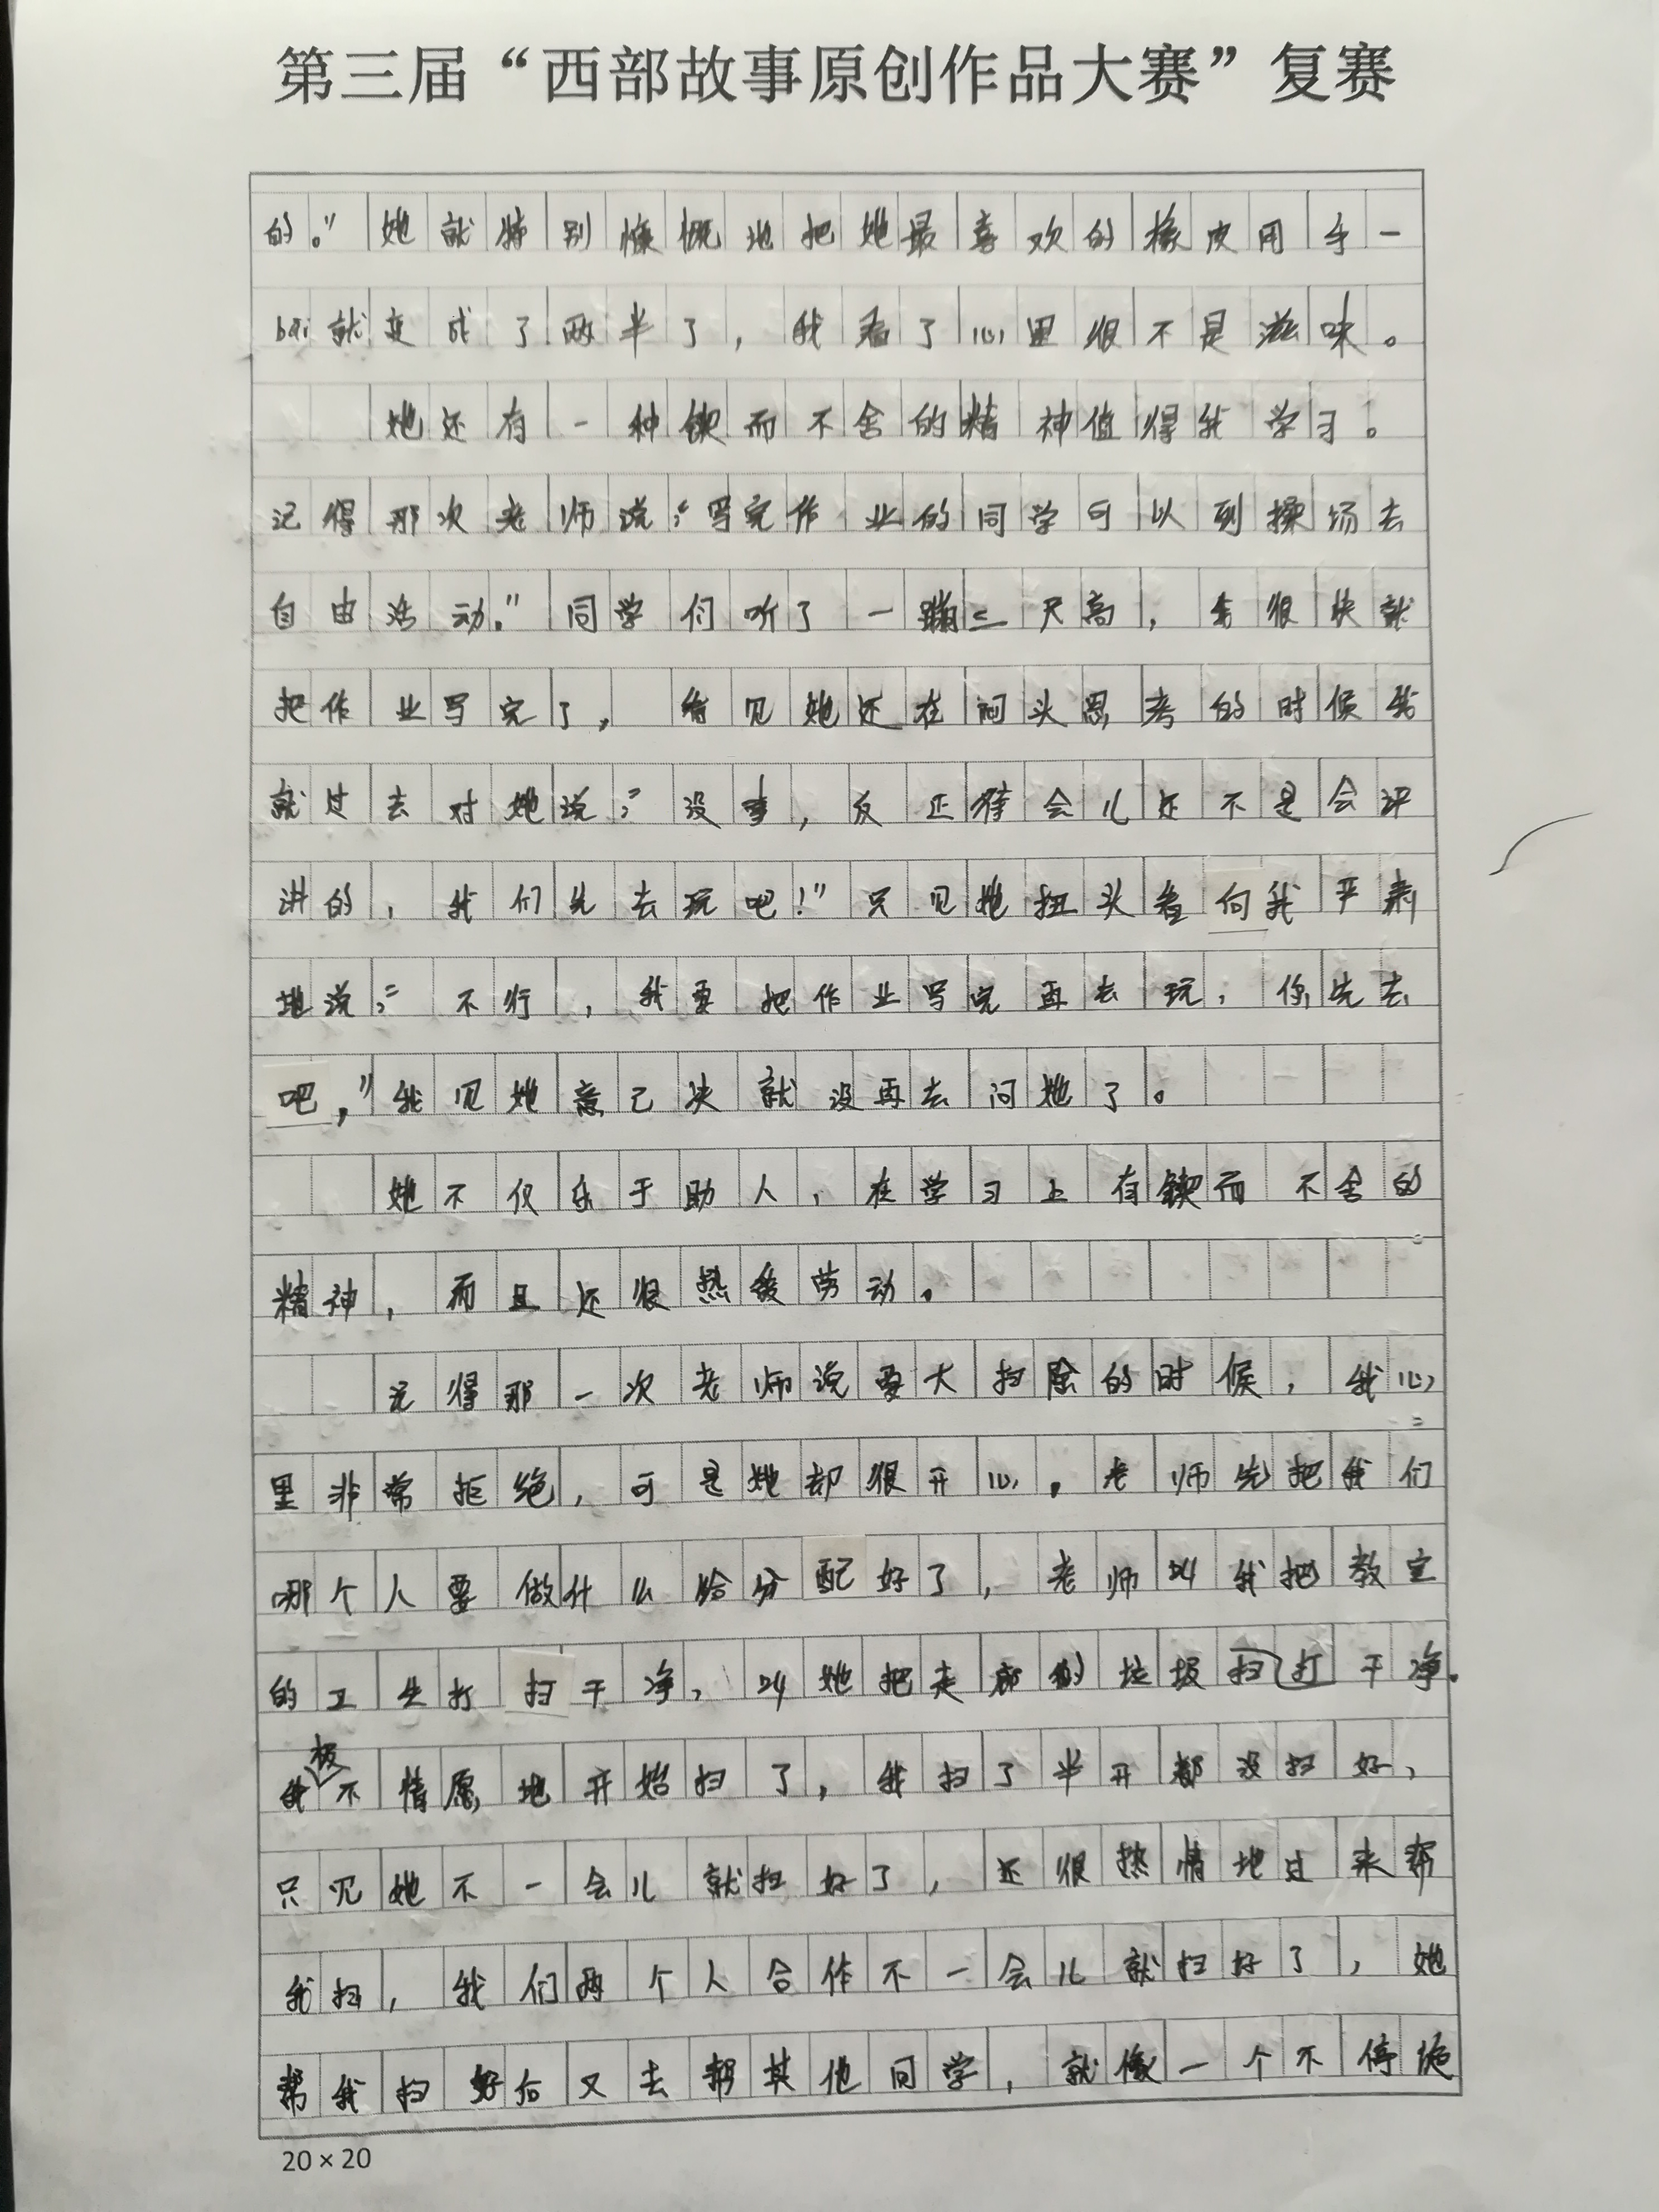 第三届“西部故事原创作品大赛”复赛
的。”她就特别慷慨地把她最喜欢的橡皮用手一
bāi就变成了两半了，我看了心里很不是滋味。
她还有一种锲而不舍的精神值得我学习。
记得那次老师说：“写完作业的同学可以到操场去
自由活动。”同学们听了一蹦三尺高，我很快就
把作业写完了，看见她还在闷头思考的时候我
就过去对她说：“没事，反正待会儿还不是会评
讲的，我们先去玩吧！”只见她扭头看向我严肃
地说：“不行，我要把作业写完再去玩，你先去
吧，”我见她意已决就没再去问她了。
她不仅乐于助人，在学习上有锲而不舍的
精神，而且还很热爱劳动。
记得那一次老师说要大扫除的时候，我心
里非常拒绝，可是她却很开心。老师先把我们
哪个人要做什么给分配好了，老师叫我把教室
的卫生打扫干净，叫她把走廊的垃圾扫打干净。
我极不情愿地开始扫了，我扫了半开都没扫好，
只见她不一会儿就扫好了，还很热情地过来帮
我扫，我们两个人合作不一会儿就扫好了，她
帮我扫好后又去帮其他同学，就像一个不停绝
20×20